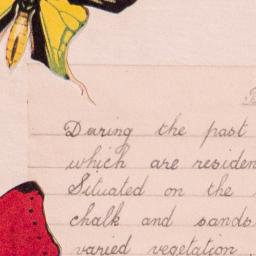 During the past
which are residen
Situated on the
chalk and sands
varied vegetation,